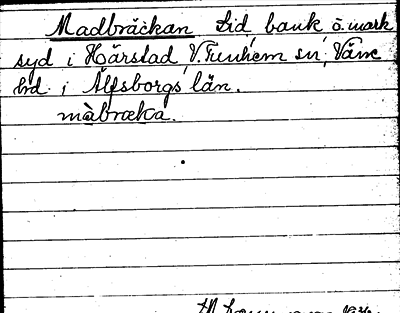 Madbräckan Lid, bank o. mark
syd i Härstad, V. Tunhem sn, Väne
hd. i Älfsborgs län.
màbræka.